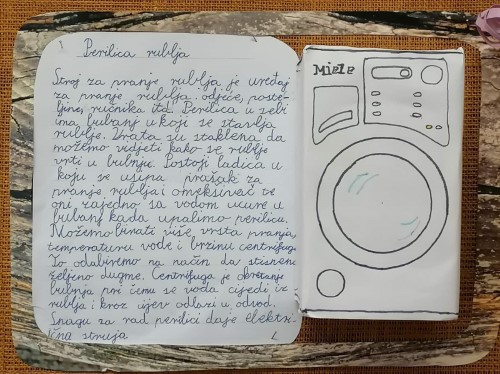 Perilica rublja
Stroj za pranje rublja je uređaj
za pranje rublja: odjeće, poste-
ljine, ručnika itd. Perilica u sebi
ima bubanj u koji se stavlja
rublje. Vrata su staklena da
možemo vidjeti kako se rublje
vrti u bubnju. Postoji ladica u
koju se usipa prašak za
pranje rublja i omekšivač te
oni zajedno sa vodom ucure u
bubanj kada upalimo perilicu.
Možemo birati više vrsta pranja,
temperaturu vode i brzinu centrifuge.
To odabiremo na način da stisnemo
željeno dugme. Centrifuga je okretanje
bubnja pri čemu se voda cijedi iz
rublja i kroz cijev odlazi u odvod.
Snagu za rad perilici daje elektri-
čna struja
Miele